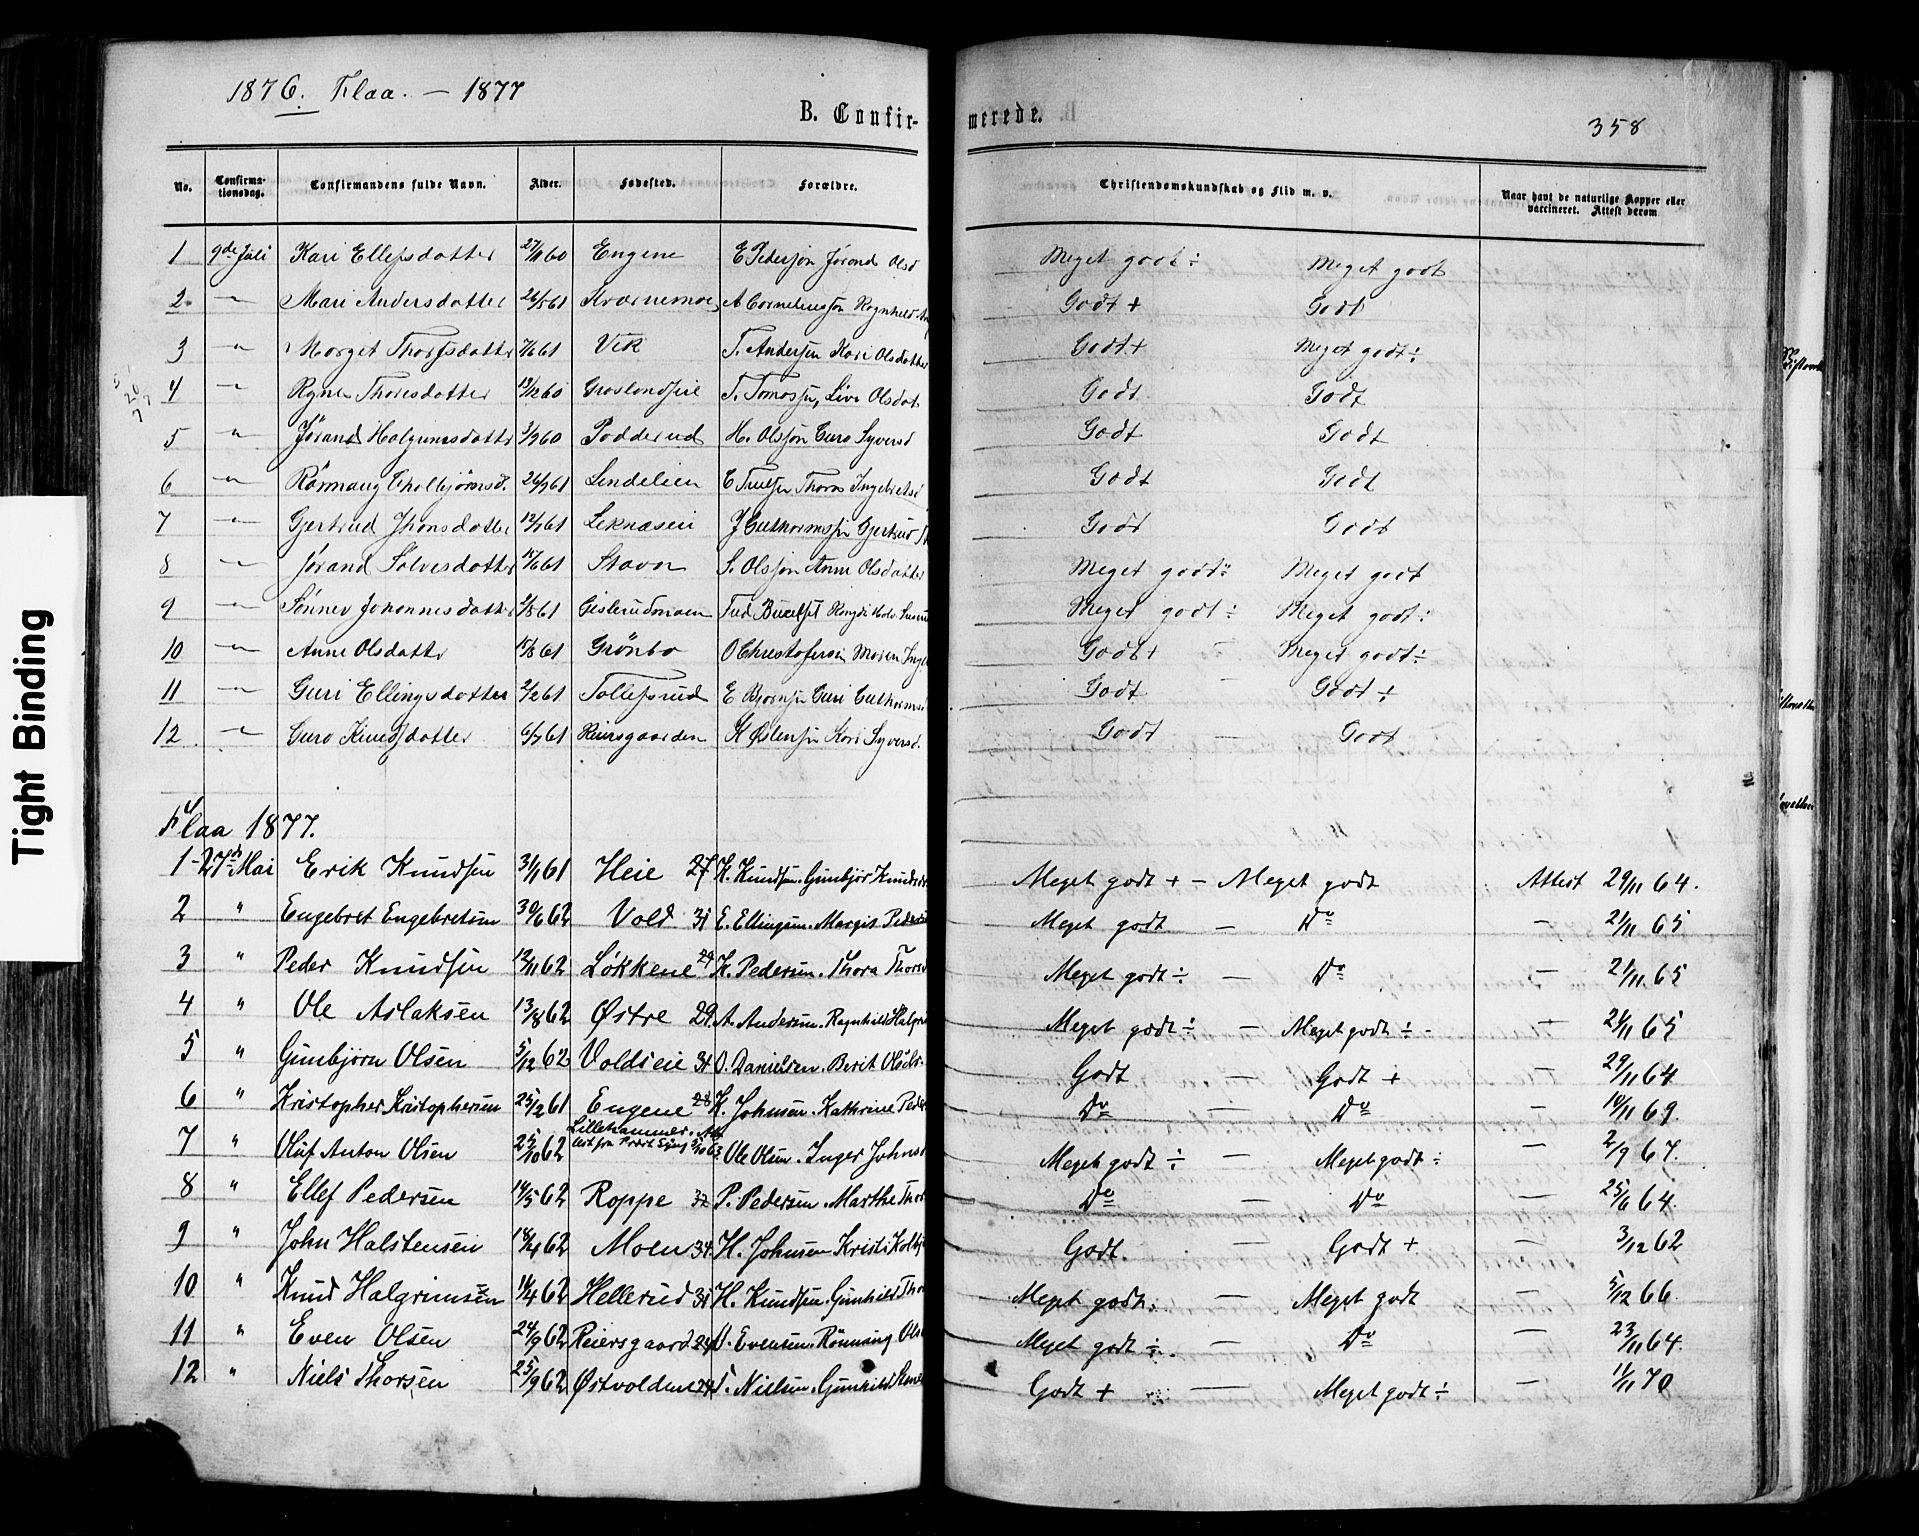 Tight Binding
1876. Flaa. — 1877
B. Confirmerede.
358
No. Confirmationsdag. Confirmandens fulde Navn. Alder. Fødested. Forældre. Christendomskundskab og Flid m. v. Naar havt de naturlige Kopper eller vaccineret. Attest derom
1 9de Juli Kari Ellefsdatter 27/11 60 Engene E Pedersøn Jørand Olsd Meget godt ÷ Meget godt
2 " Mari Andersdatter 26/5 61 Kværnemoe A Corneliussøn Ragnhild Godt + Godt
3 " Marget Thorsdatter 7/6 61 Vik T. Andersen Kari Olsdatter Godt + Meget godt ÷
4 " Thoresdatter 19/12 60 T. Tomassøn, Live Olsdat Godt Godt
5 " Jørand Halgrimsdattr 3/9 60 Podderud H. Olssøn Guro Syversd Godt Godt
6 " 26/9 61 Lindelien E Ingebretsd Godt Godt
7 " Gjertrud Jhonsdatter 12/7 61 J Guthormssøn Gjertrud Godt Godt
8 " Jørand Sølvesdatter 15/6 61 Stavn S. Olssøn Anne Olsdatter Meget godt Meget godt
9 " Johannesdatter 2/8 61 Meget godt ÷ Meget godt ÷
10 " Anne Olsdattr 15/8 61 Grönbo O Christofersøn Maren Godt + Meget godt ÷
11 " Guri Ellingsdatter 2/2 61 Tollefsrud E Bjørnsøn Guri Guthormsd Godt Godt +
12 " Guro Knudsdatter 6/7 61 Reiersgaarden K Østensøn Kari Syversd. Godt — Godt
Flaa 1877.
1 27de Mai Erik Knudsen 31/1 61 Heie 27 K. Knudsen. Gunbjør Knudsd Meget godt + — Meget godt Attest 29/11 64.
2 " Engebret Engebretsen 30/6 62 Vold 31 E. Ellingsen. Margit Peders Meget godt — Do — 21/11 65
3 " Peder Knudsen 12/11 62 Løkkene 29 K. Pedersen. Thora Thorsd Meget godt ÷ — Do — 21/11 65
4 " Ole Aslaksen 13/8 62 Østre 29. A. Andersen. Ragnhild Halgri Meget godt ÷ — Meget godt ÷ — 21/11 65
5 " Gunbjørn Olsen 5/12 62 Voldseie 31 O. Danielsen. Berit Olsd. Godt — Godt + — 29/11 64
6 " Kristopher Kristophersen 25/2 61 Engene 28 K. Johnsen. Kathrine Peder Do — Do — 10/11 69.
7 " Oluf Anton Olsen 25/10 62 Lillehammer. Ole Olsen. Inger Johns Meget godt ÷ — Meget godt ÷ — 2/9 67.
8 " Ellef Pedersen 14/5 62 Roppe 32 P. Pedersen. Marthe Thor Do — Do — 25/6 64.
9 " John Halstensen 18/4 62 Moen 34 H. Johnsen Kristi Kolbj Godt. — Godt + — 3/12 62
10 " Knud Halgrimsen 14/4 62 Hellerud 31 H. Knudsen. Gunhild Thor Meget godt. — Meget godt — 5/12 66.
11 " Even Olsen 24/9 62 Reiersgaard 24 O. Evensen. Rönnaug Ols Meget godt ÷. — Do — 23/11 64.
12 " Niels Thorsen 25/9 62 Østvolden 24 T. Nielsen. Gunhild Godt + — Meget godt ÷ — 11/11 70